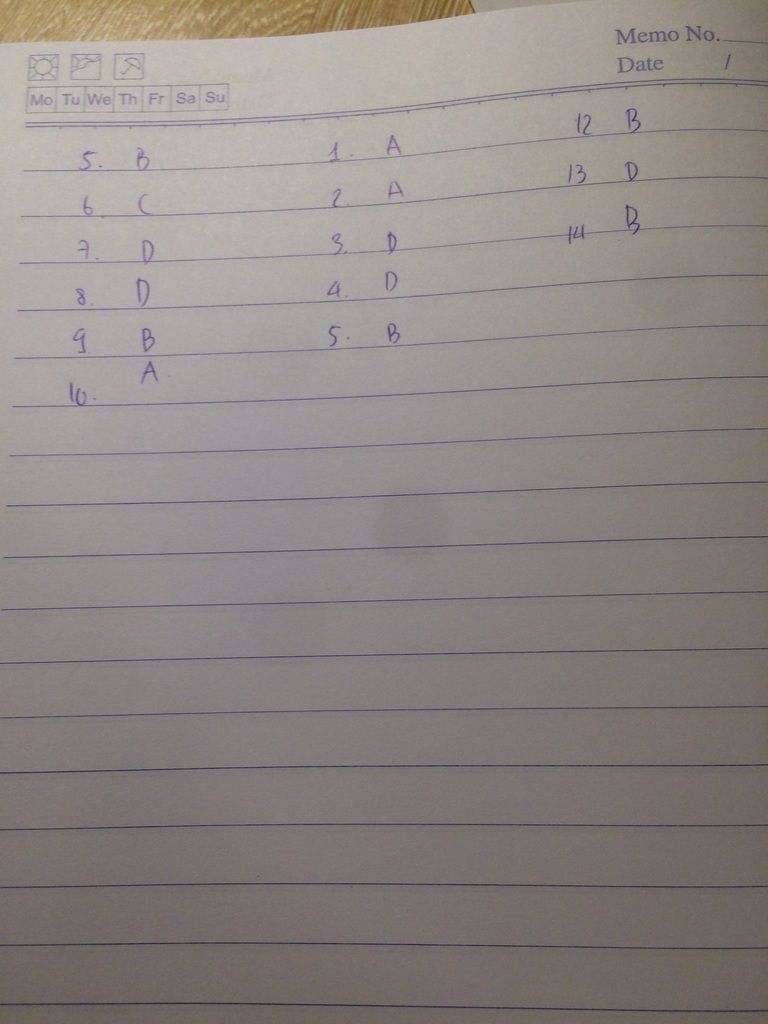 Memo No.
Date /
Mo Tu We Th Fr Sa Su
5. B
6. C
7. D
8. D
9 B
10. A
1. A
2. A
3. D
4. D
5. B
12 B
13 D
14 B